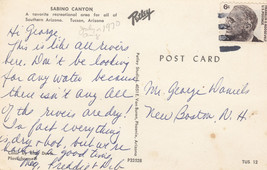 SABINO CANYON
A favorite recreational area for all of
Southern Arizona. Tucson, Arizona
Petley
1970
6c
POST CARD
Hi George,
This is like all rivers
here. Don't be looking
for any water because
there isn't any. All
of the rivers are dry!
In fact everything
is dry - hot, but we're
having a good time,
Meg, Freddie & Deb
Mr. George Daniels
New Boston, N. H.
P22208
TUS 12